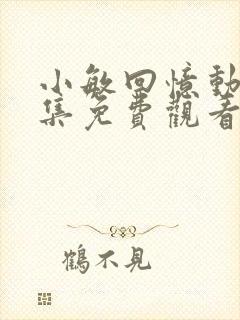 小敏回憶動
集免費觀看
鶴不見